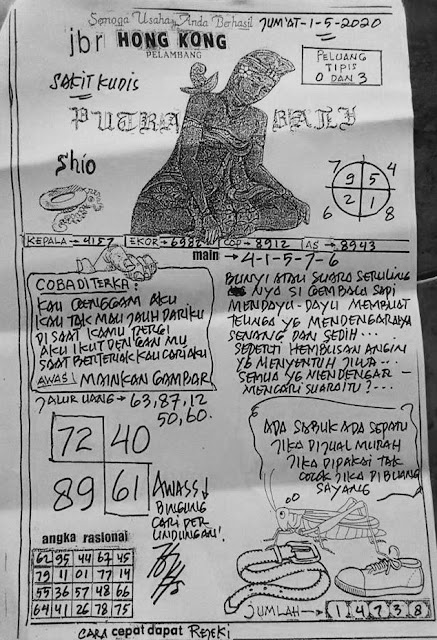 Semoga Usaha Anda Berhasil
JUM'AT-1-5-2020
jbr HONG KONG
PELAMBANG
PELUANG
TIPIS
0 DAN 3
SAKIT KUDIS
PUTRA BALI
Shio
7 4
9 5
2 1
6 8
KEPALA→4157 EKOR→6982 COP→8912 AS→8943
main→4-1-5-7-6
COBA DITERKA:
KAU GENGGAM AKU
KAU TAK MAU JAUH DARIKU
DI SAAT KAMU PERGI
AKU IKUT DENGAN MU
SAAT BERTERIAK KAU CARI AKU
AWAS! MAINKAN GAMBAR
BUNYI ATAU SUARA SERULING
NYA SI GEMBALA SAPI
MENDAYU-DAYU MEMBUAT
TELINGA YG MENDENGARNYA
SENANG DAN SEDIH....
SEPERTI HEMBUSAN ANGIN
YG MENYENTUH JIWA...
SEMUA YG MENDENGAR
MENCARI SUARA ITU?...
JALUR UANG→63,87,12
50,60.
72 40
89 61
AWASS
BINGUNG
CARI PER
LINDUNGAN!
ADA SABUK ADA SEPATU
JIKA DIJUAL MURAH
JIKA DIPAKAI TAK
COCOK JIKA DIBUANG
SAYANG
angka rasional
62 95 44 67 45
79 11 01 77 14
55 36 57 48 66
64 41 26 78 75
JUMLAH→1 4 7 3 8
CARA cepat dapat REJEKI